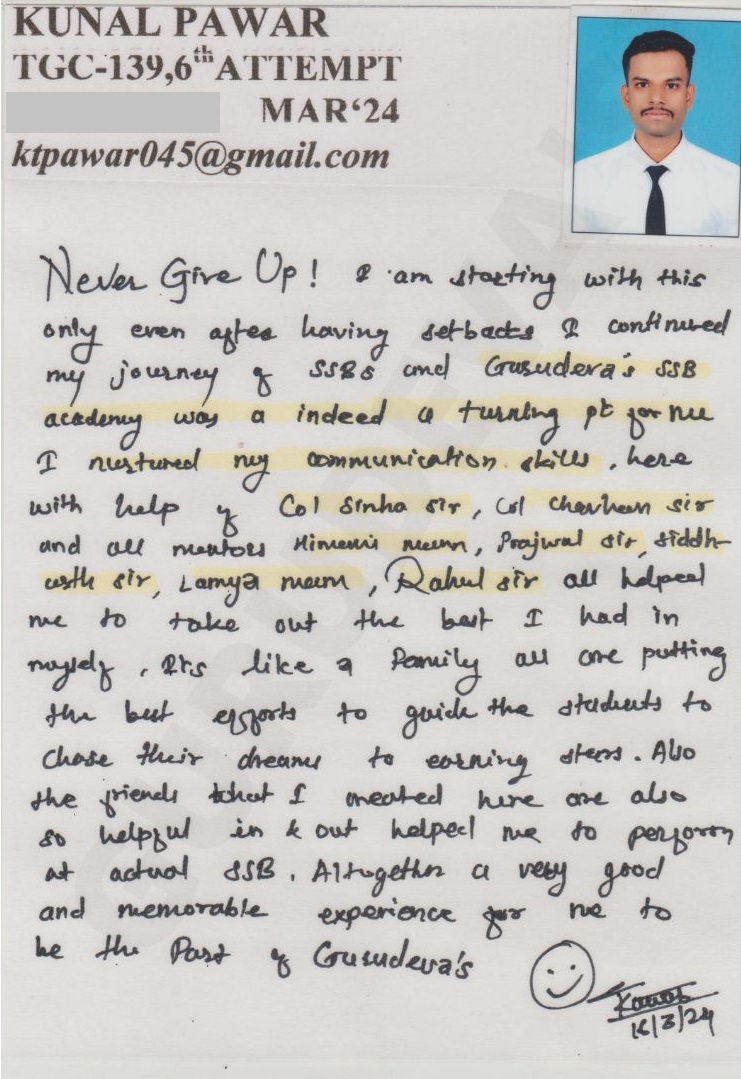 KUNAL PAWAR
TGC-139,6th ATTEMPT
MAR‘24
ktpawar045@gmail.com
Never Give Up! I am starting with this
only even after having setbacks I continued
my journey of SSBs and Gurudeva's SSB
academy was a indeed a turning pt for me
I nurtured my communication skills, here
with help of Col Sinha sir, Col Chavhan sir
and all mentors Himani mam, Prajwal sir, siddh-
arth sir, Lamya mam, Rahul sir all helped
me to take out the best I had in
myself, Its like a family all are putting
the best efforts to guide the students to
chase their dreams to earning stars. Also
the friends that I created here are also
so helpful in & out helped me to perform
at actual SSB. Altogether a very good
and memorable experience for me to
be the Part of Gurudeva's
16/3/24
GURUDEVA